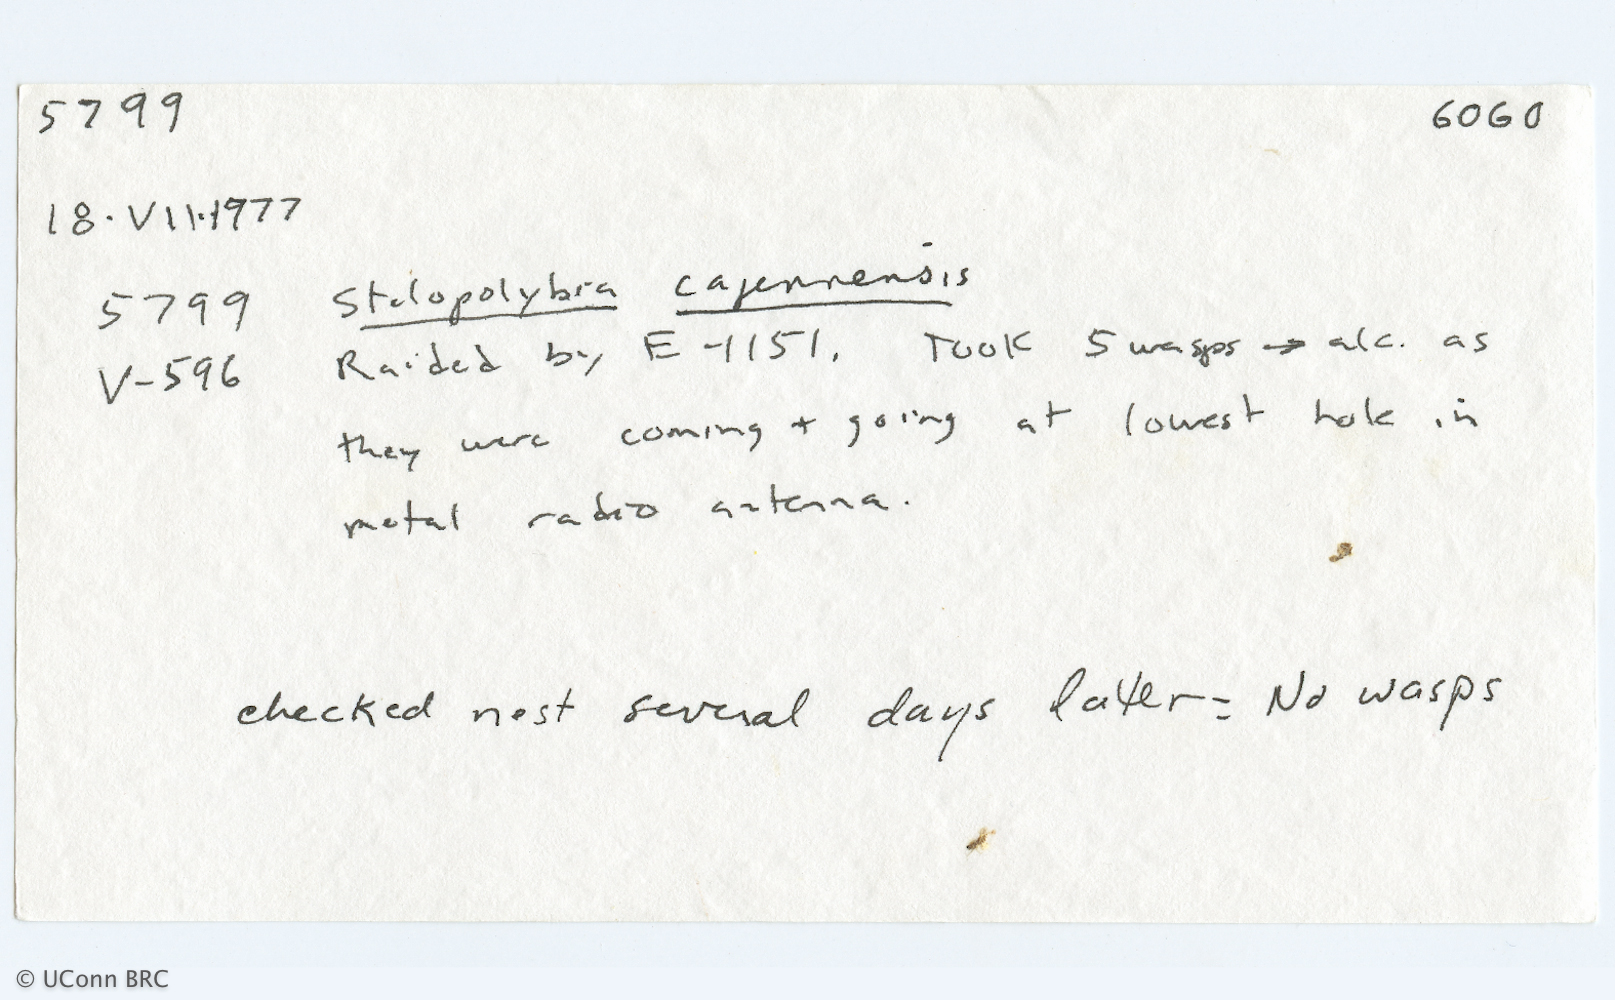 5799 6060
18.VII.1977
5799 Stelopolybia cajennensis
V-596 Raided by E-1151. Took 5 wasps → alc. as
they were coming + going at lowest hole in
metal radio antenna.
checked nest several days later = No wasps
© UConn BRC